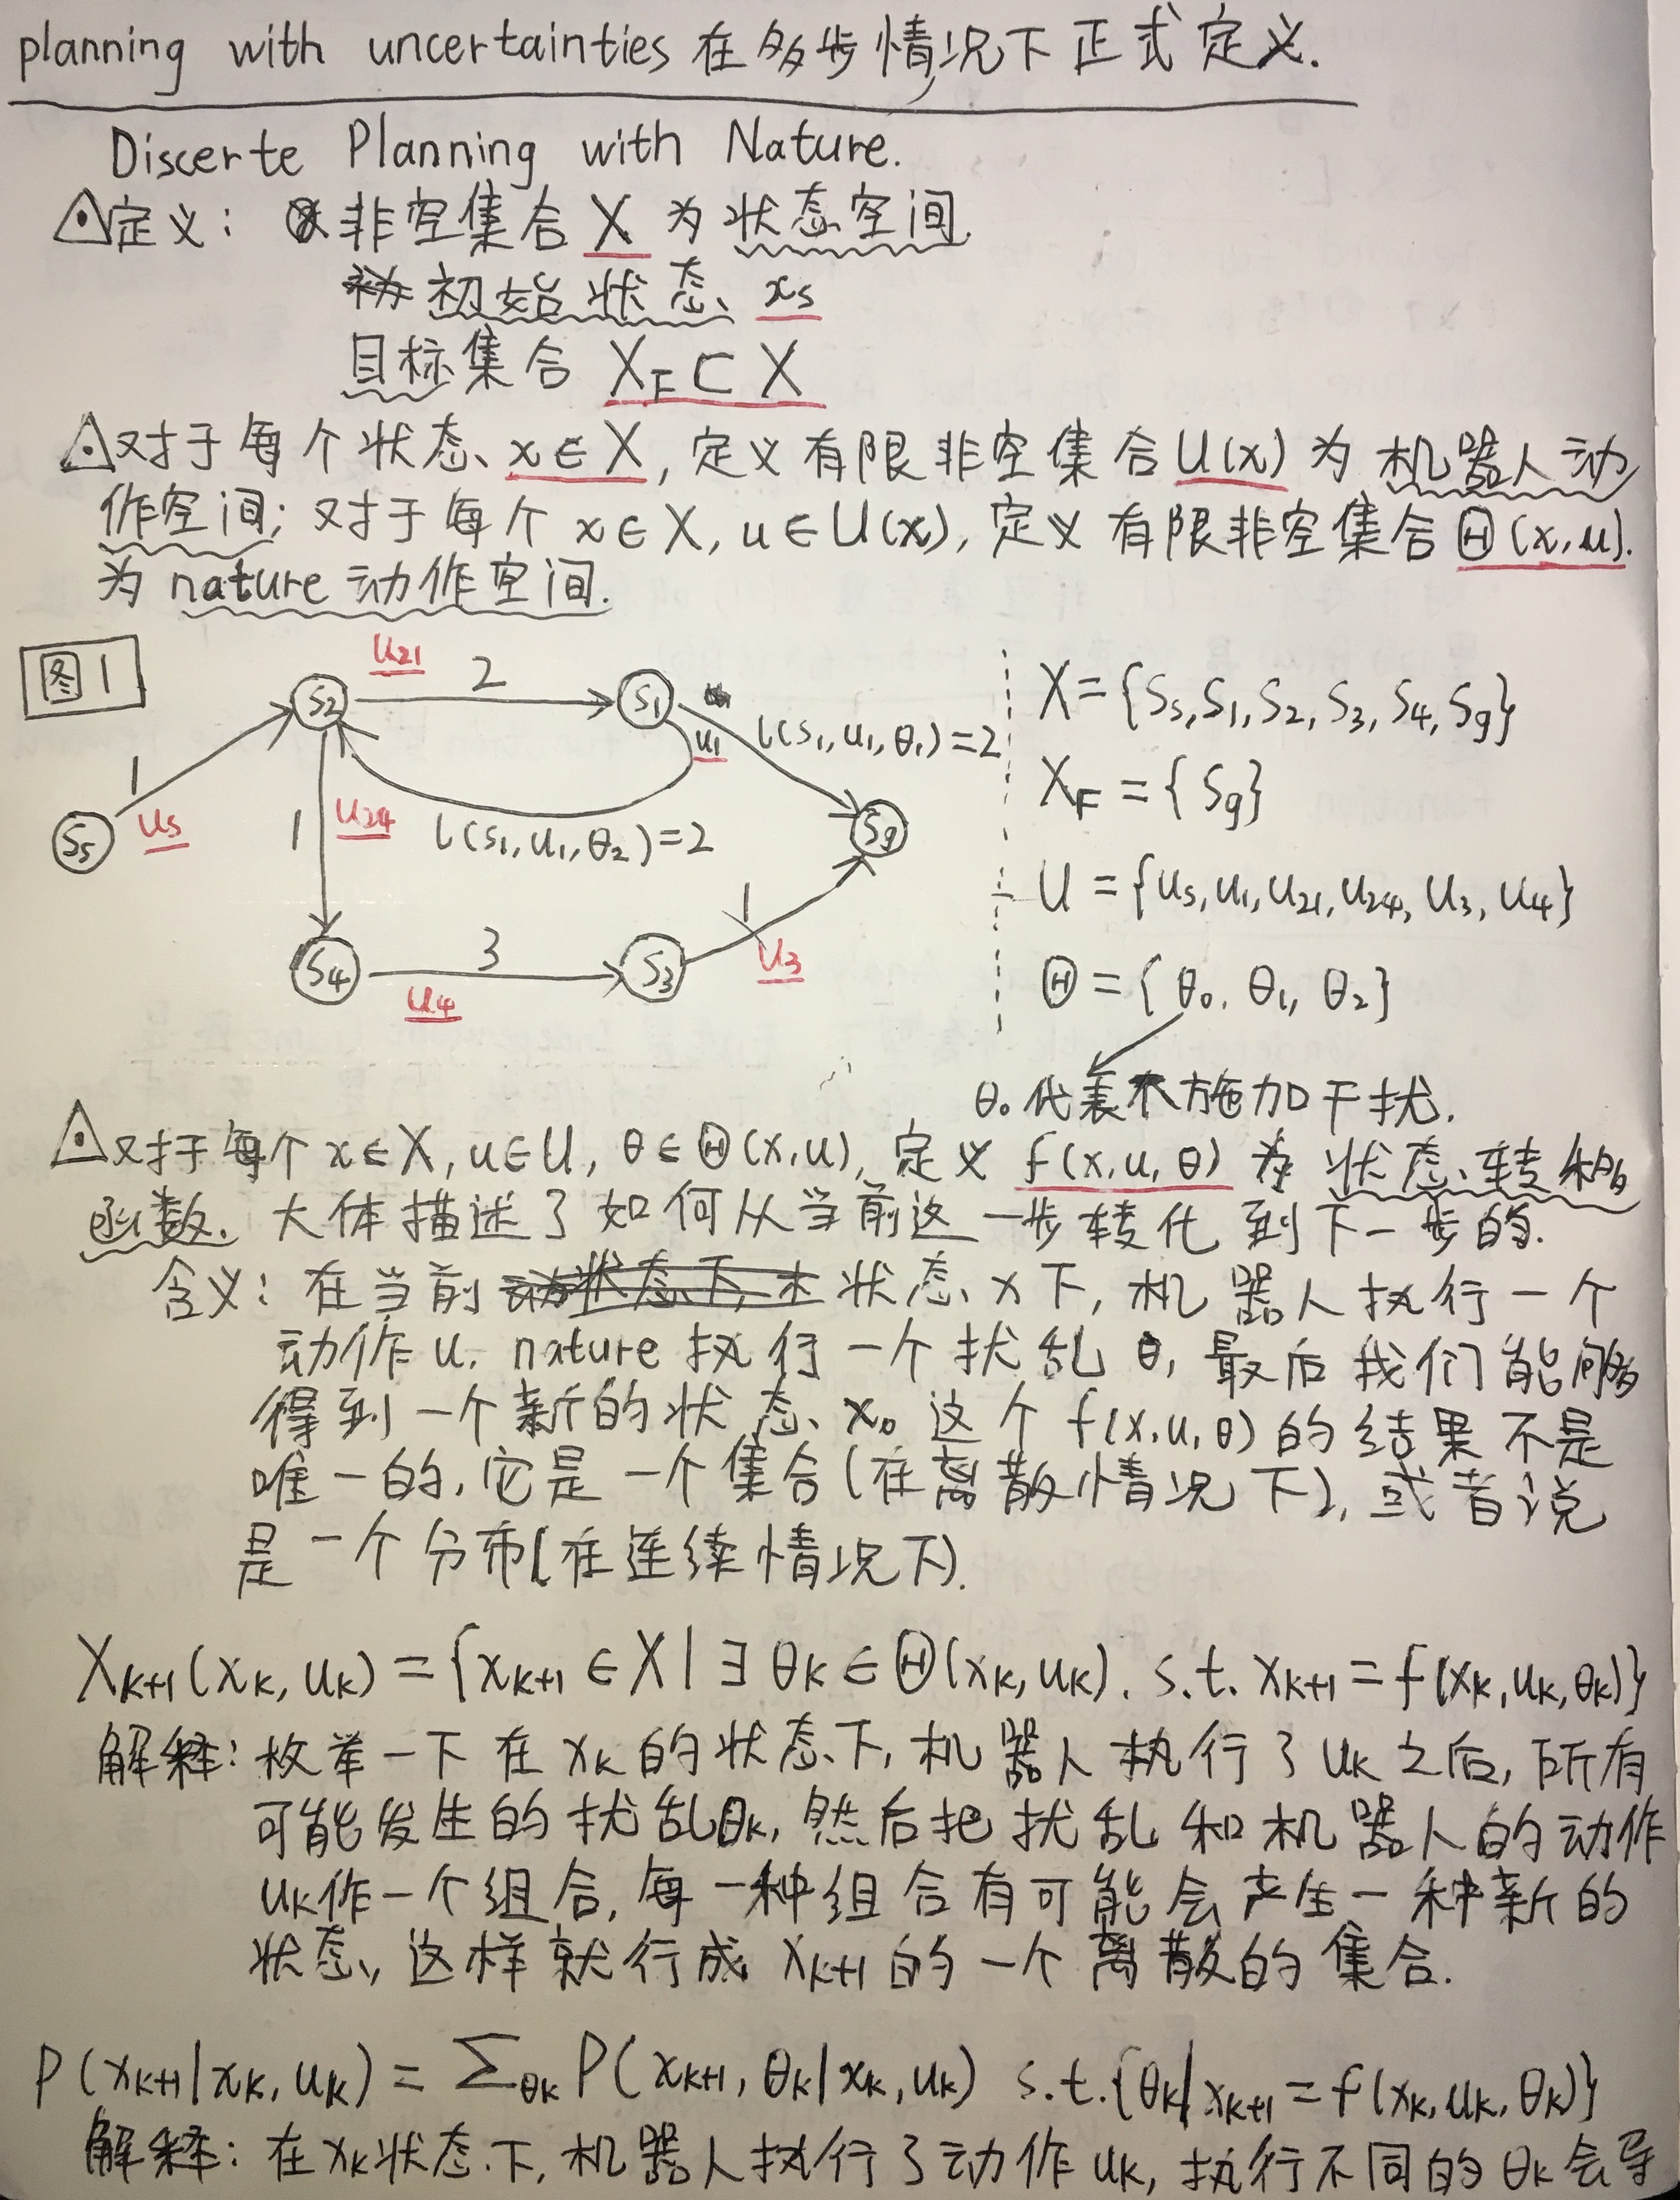 planning with uncertainties 在多步情况下正式定义.
Discerte Planning with Nature.
定义: 非空集合 X 为状态空间
初始状态 xs
目标集合 X_F ⊂ X
对于每个状态 x∈X, 定义有限非空集合 U(x) 为 机器人动
作空间; 对于每个 x∈X, u∈U(x), 定义有限非空集合 Θ(x,u).
为 nature 动作空间.
图1
u21
S2 2 S1
u1 l(s1, u1, θ1)=2
1
us
Ss
1 u24
l(s1, u1, θ2)=2
Sg
S4 3 S3 1
u4
u3
X={Ss, S1, S2, S3, S4, Sg}
X_F={Sg}
U={us, u1, u21, u24, u3, u4}
Θ={θ0, θ1, θ2}
θ0代表不施加干扰.
对于每个 x∈X, u∈U, θ∈Θ(x,u), 定义 f(x,u,θ) 为 状态转移
函数. 大体描述了如何从当前这一步转化到下一步的.
含义: 在当前状态 x下, 机器人执行一个
动作 u, nature 执行一个扰乱 θ, 最后我们能够
得到一个新的状态 x。这个 f(x,u,θ) 的结果不是
唯一的, 它是一个集合(在离散情况下), 或者说
是一个分布(在连续情况下).
X_{k+1}(x_k, u_k)={x_{k+1}∈X|∃θ_k∈Θ(x_k, u_k). s.t. x_{k+1}=f(x_k, u_k, θ_k)}
解释: 枚举一下在 x_k 的状态下, 机器人执行了 u_k 之后, 所有
可能发生的扰乱θ_k, 然后把扰乱和机器人的动作
u_k作一个组合, 每一种组合有可能会产生一种新的
状态, 这样就行成 x_{k+1} 的一个离散的集合.
P(x_{k+1}|x_k, u_k)=Σ_{θ_k} P(x_{k+1}, θ_k|x_k, u_k) s.t.{θ_k|x_{k+1}=f(x_k, u_k, θ_k)}
解释: 在x_k状态下, 机器人执行了动作 u_k, 执行不同的 θ_k 会导